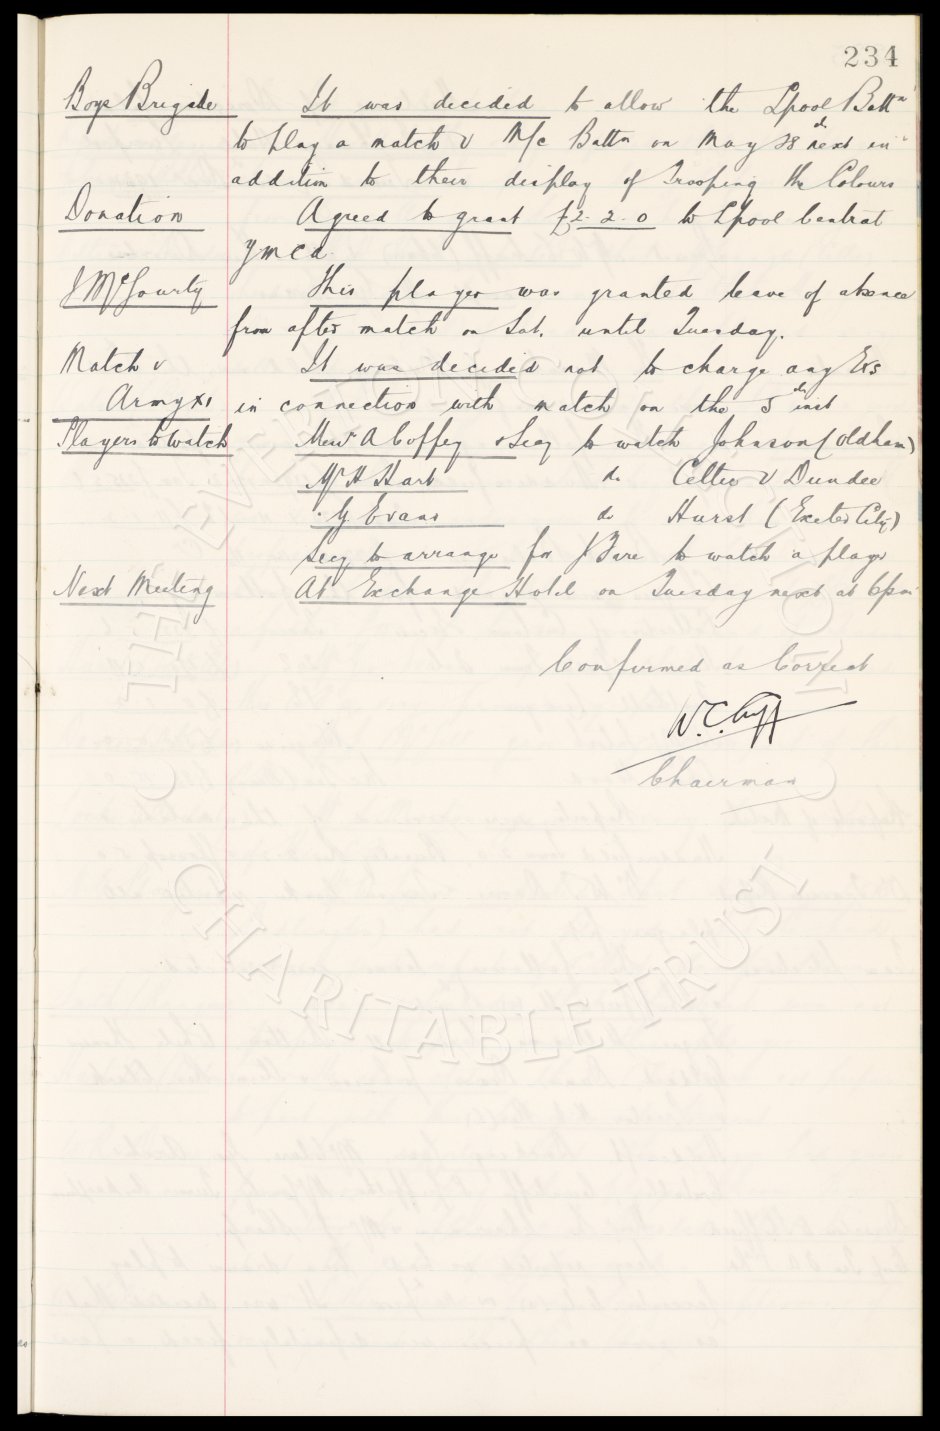 234
Boys Brigade It was decided to allow the Lpool Battn
to play a match v M/c Battn on May 28th next in
addition to their display of Trooping the Colours
Donation Agreed to grant £2.2.0 to Lpool Central
YMCA.
J McGourty This player was granted leave of absence
from after match on Sat. until Tuesday.
Match v It was decided not to charge any Exs
Army XI in connection with match on the 5th inst
Players to watch Messrs A Coffey & Secy to watch Johnson (Oldham)
Mr H Hart do Celtic v Dundee
" G Evans do Hurst (Exeter City)
Secy to arrange for J Bare to watch a player
Next Meeting At Exchange Hotel on Tuesday next at 6pm
Confirmed as Correct
W.C. Cuff
Chairman
THE EVERTON COLLECTION
CHARITABLE TRUST